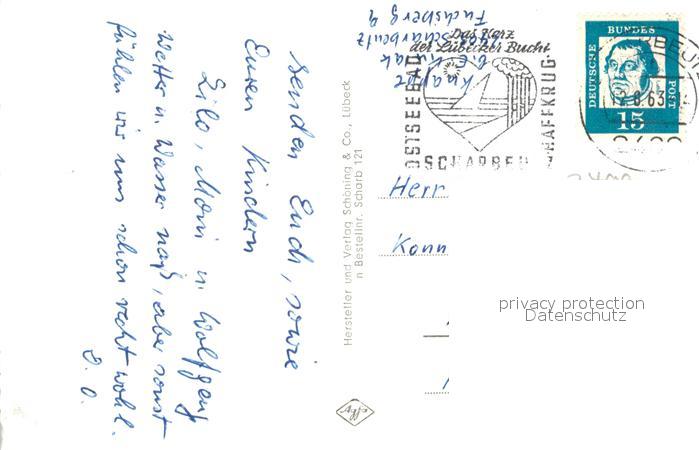 senden Euch, sowie
Euren Kindern
Lilo, Moni u. Wolfgang
Wetter u. Wasser naß, aber sonst
fühlen wir uns schon recht wohl.
D. O.
Hersteller und Verlag Schöning & Co., Lübeck
n Bestellnr. Scharb 121
Agfa
Knappe
Scharbeutz
Fuchsberg 9
Das Herz
der Lübecker Bucht
OSTSEEBAD
SCHARBEU
HAFFKRUG
DEUTSCHE
BUNDES
POST
15
12.8.63
Herr
Konn
privacy protection
Datenschutz